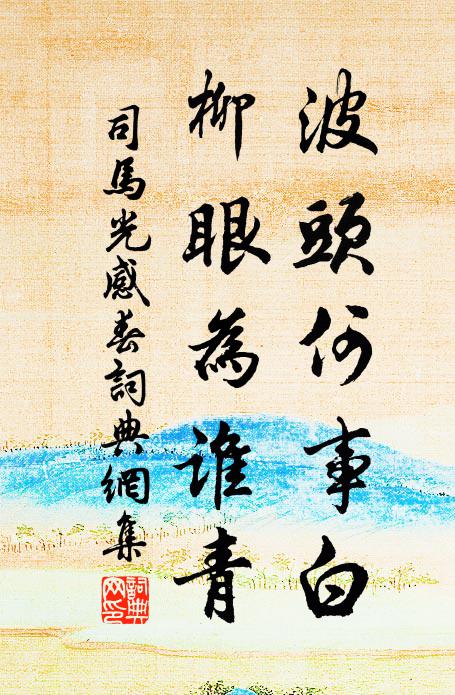 波頭何事白
柳眼為誰青
司馬光感春詞典網集
詞典